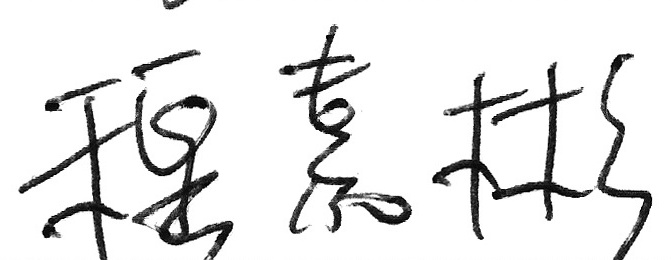 程嘉彬